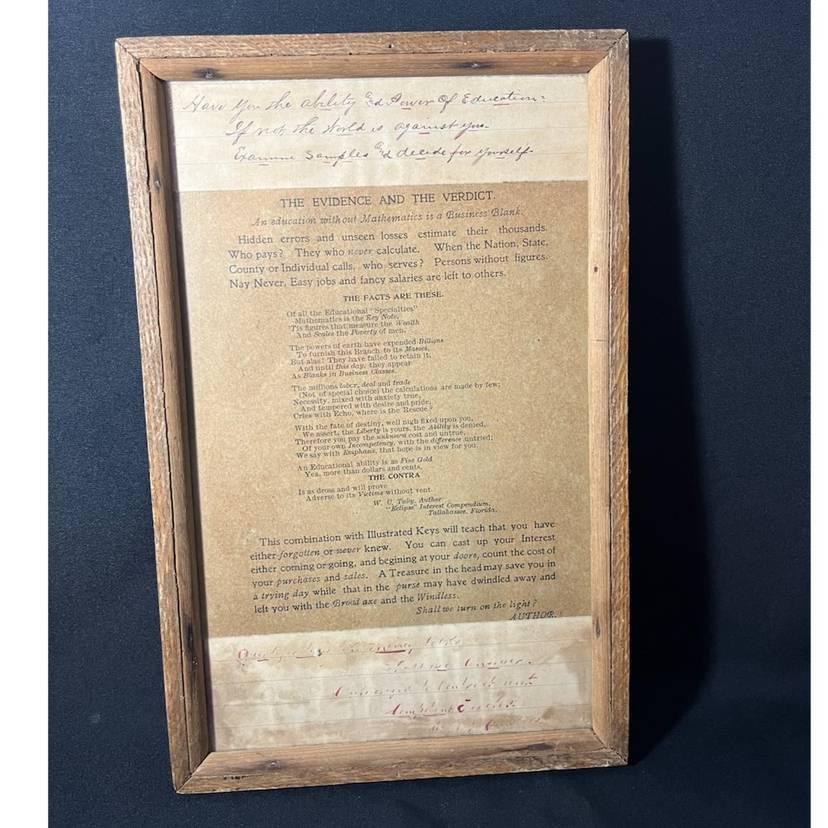 Have you the ability &d Power Of Education:
If not, the World is against you.
Examine Samples &d decide for yourself.
THE EVIDENCE AND THE VERDICT.
An education without Mathematics is a Business Blank.
Hidden errors and unseen losses estimate their thousands.
Who pays? They who never calculate. When the Nation, State,
County or Individual calls, who serves? Persons without figures.
Nay Never, Easy jobs and fancy salaries are left to others.
THE FACTS ARE THESE.
Of all the Educational "Specialties"
Mathematics is the Key Note,
'Tis figures that measure the Wealth
And Scales the Poverty of men.
The powers of earth have expended Billions
To furnish this Branch to its Masses,
But alas! They have failed to retain it,
And until this day, they appear
As Blanks in Business Classes.
The millions labor, deal and trade
(Not of special choice) the calculations are made by few;
Necessity, mixed with anxiety true,
And tempered with desire and pride,
Cries with Echo, where is the Rescue?
With the fate of destiny, well nigh fixed upon you,
We assert, the Liberty is yours, the Ability is denied,
Therefore you pay the unknown cost and untrue,
Of your own Incompetency, with the difference untried;
We say with Emphasis, that hope is in view for you.
An Educational ability is as Fine Gold
Yea, more than dollars and cents,
THE CONTRA
Is as dross and will prove
Adverse to its Victims without vent.
W. C. Tully, Author
"Eclipse" Interest Compendium,
Tallahassee, Florida.
This combination with Illustrated Keys will teach that you have
either forgotten or never knew. You can cast up your Interest
either coming or going, and begining at your doors, count the cost of
your purchases and sales. A Treasure in the head may save you in
a trying day while that in the purse may have dwindled away and
left you with the Broad axe and the Windless.
Shall we turn on the light?
AUTHOR.